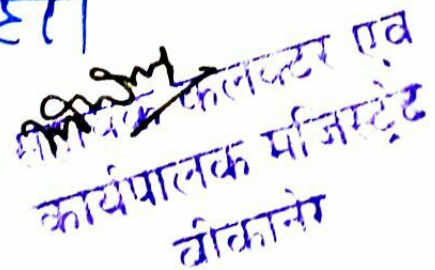 है।
सहायक कलक्टर एवं
कार्यपालक मजिस्ट्रेट
बीकानेर